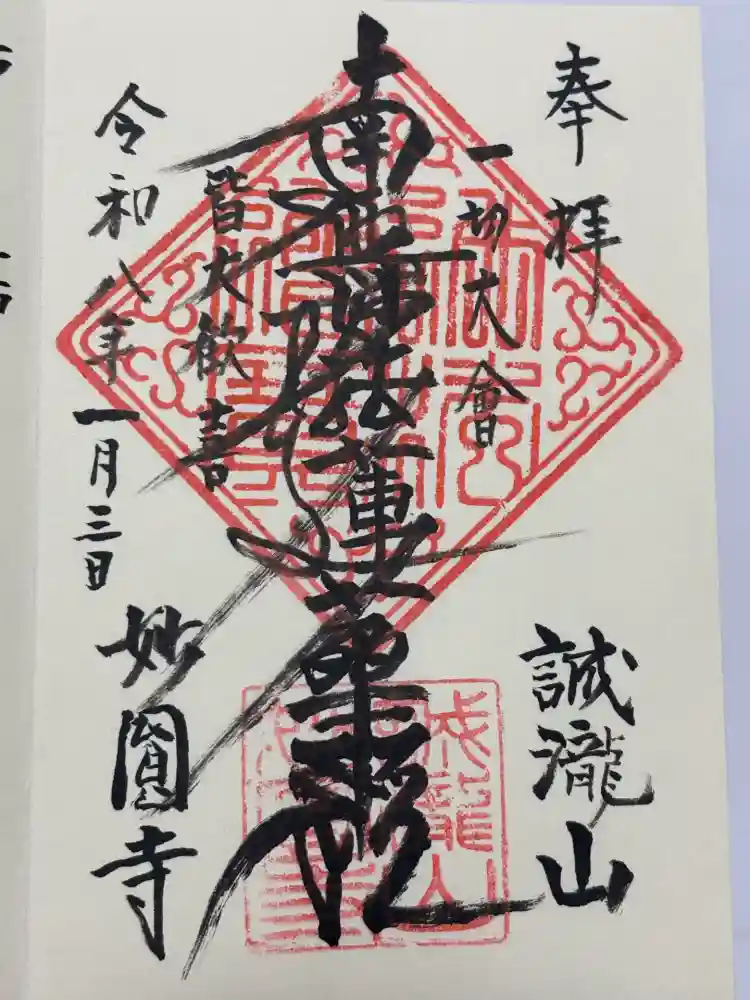 奉拝
誠瀧山
一切大會
南無妙法蓮華経
皆大歓喜
令和八年
一月三日
妙圓寺